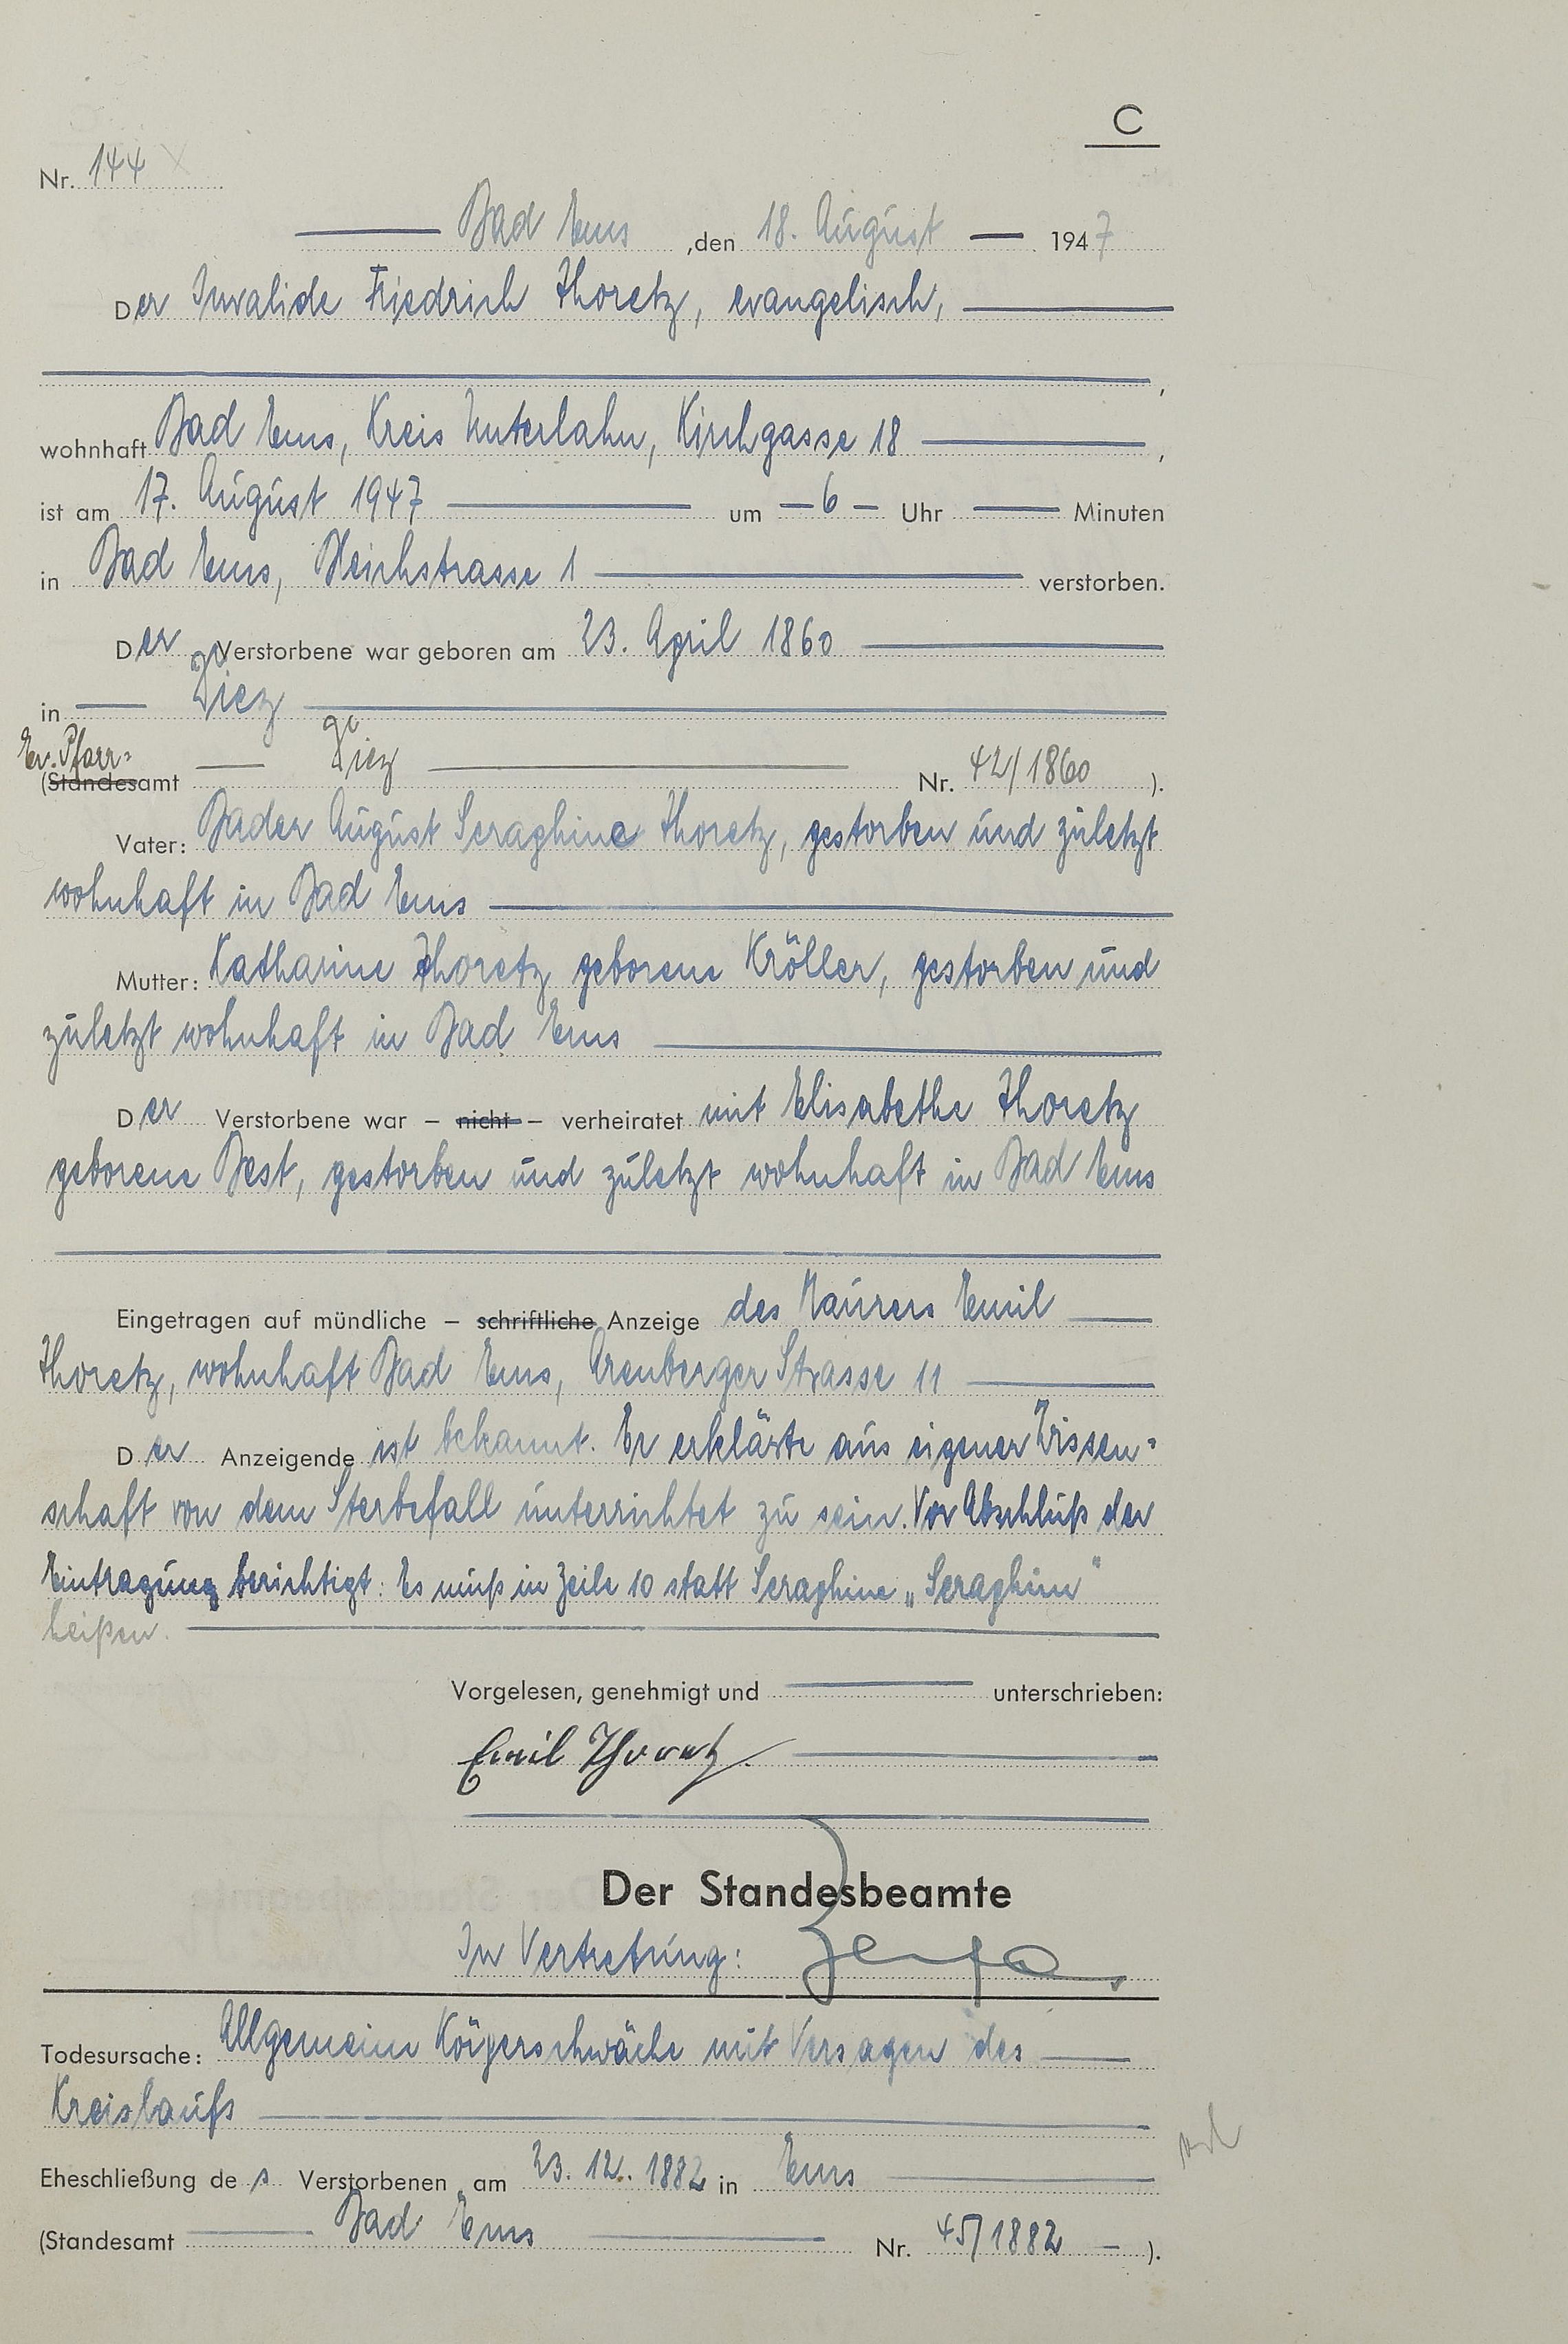 C
Nr. 144
Bad Ems, den 18. August 1947
Der Invalide Friedrich Thoretz, evangelisch,
,
wohnhaft Bad Ems, Kreis Unterlahn, Kirchgasse 18,
ist am 17. August 1947 um 6 Uhr Minuten
in Bad Ems, Bleichstrasse 1 verstorben.
Der Verstorbene war geboren am 23. April 1860
in Diez
Ev. Pfarr=
(Standesamt Diez Nr. 42/1860).
Vater: Bader August Seraphine Thoretz, gestorben und zuletzt
wohnhaft in Bad Ems
Mutter: Katharine Thoretz geborene Kröller, gestorben und
zuletzt wohnhaft in Bad Ems
Der Verstorbene war – nicht – verheiratet mit Elisabethe Thoretz
geborene Best, gestorben und zuletzt wohnhaft in Bad Ems
Eingetragen auf mündliche – schriftliche Anzeige des Maurers Emil
Thoretz, wohnhaft Bad Ems, Arenberger Strasse 11
Der Anzeigende ist bekannt. Er erklärte aus eigener Wissen=
schaft von dem Sterbefall unterrichtet zu sein. Vor Abschluß der
Eintragung berichtigt: Es muß in Zeile 10 statt Seraphine „Seraphim“
heißen.
Vorgelesen, genehmigt und unterschrieben:
Emil Thoretz.
Der Standesbeamte
In Vertretung:
Todesursache: Allgemeine Körperschwäche mit Versagen des
Kreislaufs
Eheschließung des Verstorbenen am 23. 12. 1882 in Ems
(Standesamt Bad Ems Nr. 45/1882).